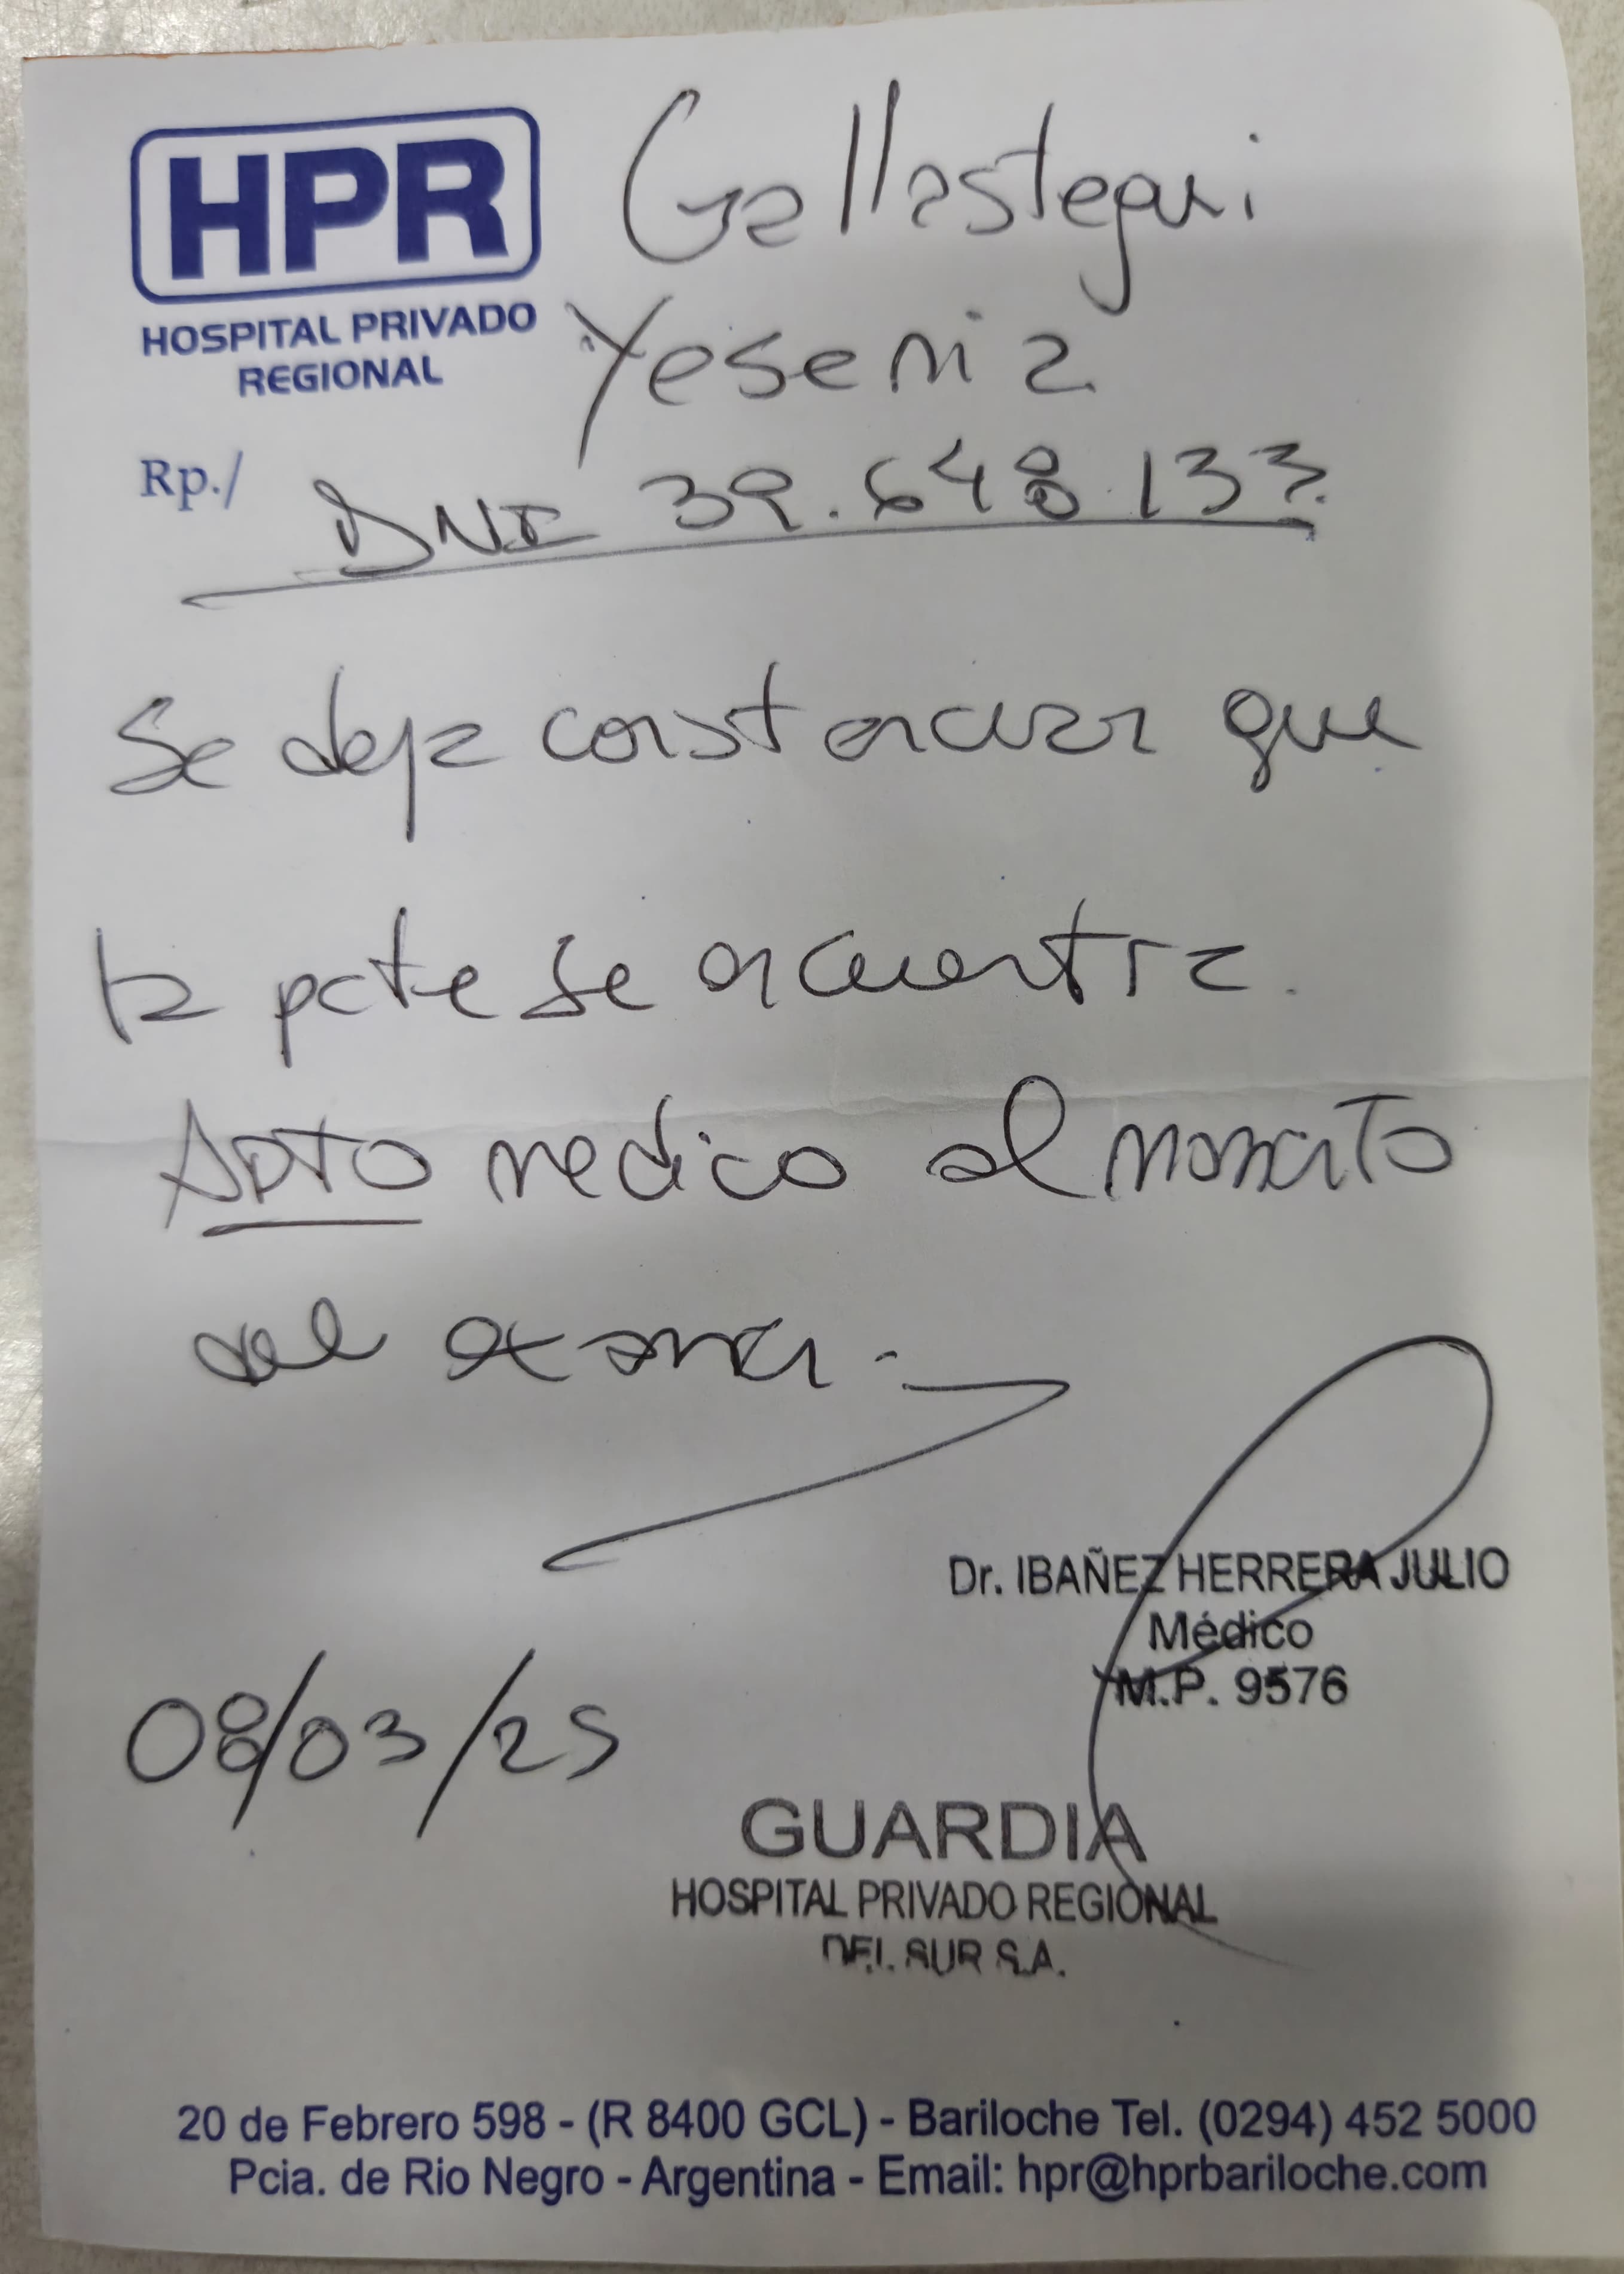 HPR
HOSPITAL PRIVADO
REGIONAL
Gallastegui
Yesenia
Rp./
DNI 39.648.133
Se deja constancia que
la pcte se encuentra.
APTO medico al momento
del examen.-
Dr. IBAÑEZ HERRERA JULIO
Médico
M.P. 9576
08/03/25
GUARDIA
HOSPITAL PRIVADO REGIONAL
DEL SUR S.A.
20 de Febrero 598 - (R 8400 GCL) - Bariloche Tel. (0294) 452 5000
Pcia. de Rio Negro - Argentina - Email: hpr@hprbariloche.com